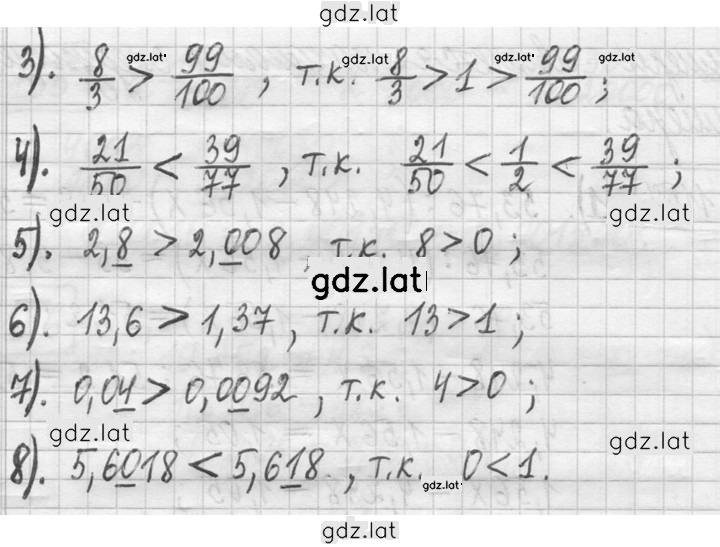 gdz.lat
3). 8/3 > 99/100, т.к. 8/3 > 1 > 99/100;
gdz.lat gdz.lat gdz.lat
4). 21/50 < 39/77, т.к. 21/50 < 1/2 < 39/77;
gdz.lat gdz.lat
5). 2,8 > 2,008, т.к. 8 > 0;
gdz.lat
6). 13,6 > 1,37, т.к. 13 > 1;
7). 0,04 > 0,0092, т.к. 4 > 0;
gdz.lat gdz.lat
8). 5,6018 < 5,618, т.к. 0 < 1.
gdz.lat
gdz.lat